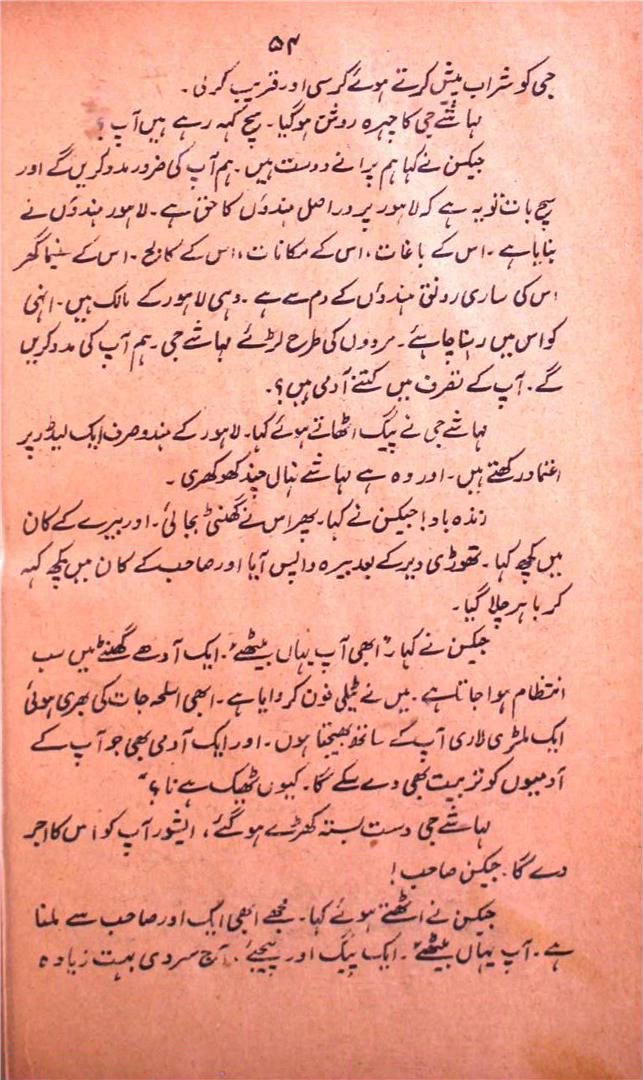 ۵۴
جی کو شراب پیش کرتے ہوئے کرسی اور قریب کر لی۔
مہاشے جی کا چہرہ روشن ہو گیا۔ سچ کہہ رہے ہیں آپ؟
جیکسن نے کہا ہم پرانے دوست ہیں۔ ہم آپ کی ضرور مدد کریں گے اور
سچ بات تو یہ ہے کہ لاہور پر دراصل ہندوؤں کا حق ہے۔ لاہور ہندوؤں نے
بنایا ہے۔ اس کے باغات، اس کے مکانات، اس کے کالج۔ اس کے سنیما گھر
اس کی ساری رونق ہندوؤں کے دم سے ہے۔ وہی لاہور کے مالک ہیں۔ انہی
کو اس میں رہنا چاہئے۔ مردوں کی طرح لڑئے مہاشے جی۔ ہم آپ کی مدد کریں
گے۔ آپ کے تصرف میں کتنے آدمی ہیں؟۔
مہاشے جی نے پیگ اٹھاتے ہوئے کہا۔ لاہور کے ہندو صرف ایک لیڈر پر
اعتماد رکھتے ہیں۔ اور وہ ہے مہاشے نہال چند کھوکھری۔
زندہ باد! جیکسن نے کہا۔ پھر اس نے گھنٹی بجائی۔ اور بیرے کے کان
میں کچھ کہا۔ تھوڑی دیر کے بعد بیرہ واپس آیا اور صاحب کے کان میں کچھ کہہ
کر باہر چلا گیا۔
جیکسن نے کہا "ابھی آپ یہاں بیٹھئے۔ ایک آدھے گھنٹے میں سب
انتظام ہوا جاتا ہے۔ میں نے ٹیلی فون کروایا ہے۔ ابھی اسلحہ جات کی بھری ہوئی
ایک ملٹری لاری آپ کے ساتھ بھیجتا ہوں۔ اور ایک آدمی بھی جو آپ کے
آدمیوں کو تربیت بھی دے سکے گا۔ کیوں ٹھیک ہے نا؟"
مہاشے جی دست بستہ کھڑے ہو گئے، ایشور آپ کو اس کا اجر
دے گا۔ جیکسن صاحب!
جیکسن نے اٹھتے ہوئے کہا۔ مجھے ابھی ایک اور صاحب سے ملنا
ہے۔ آپ یہاں بیٹھئے۔ ایک پیگ اور پیجئے۔ آج سردی بہت زیادہ